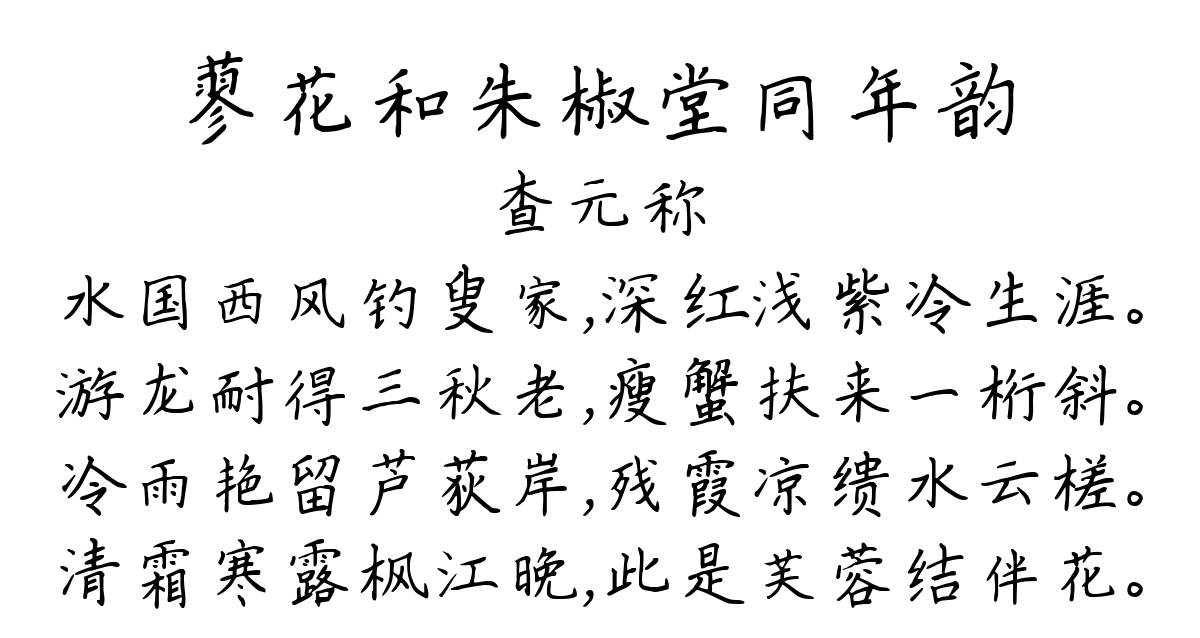 蓼花和朱椒堂同年韵
查元称
水国西风钓叟家,深红浅紫冷生涯。
游龙耐得三秋老,瘦蟹扶来一桁斜。
冷雨艳留芦荻岸,残霞凉缋水云槎。
清霜寒露枫江晚,此是芙蓉结伴花。